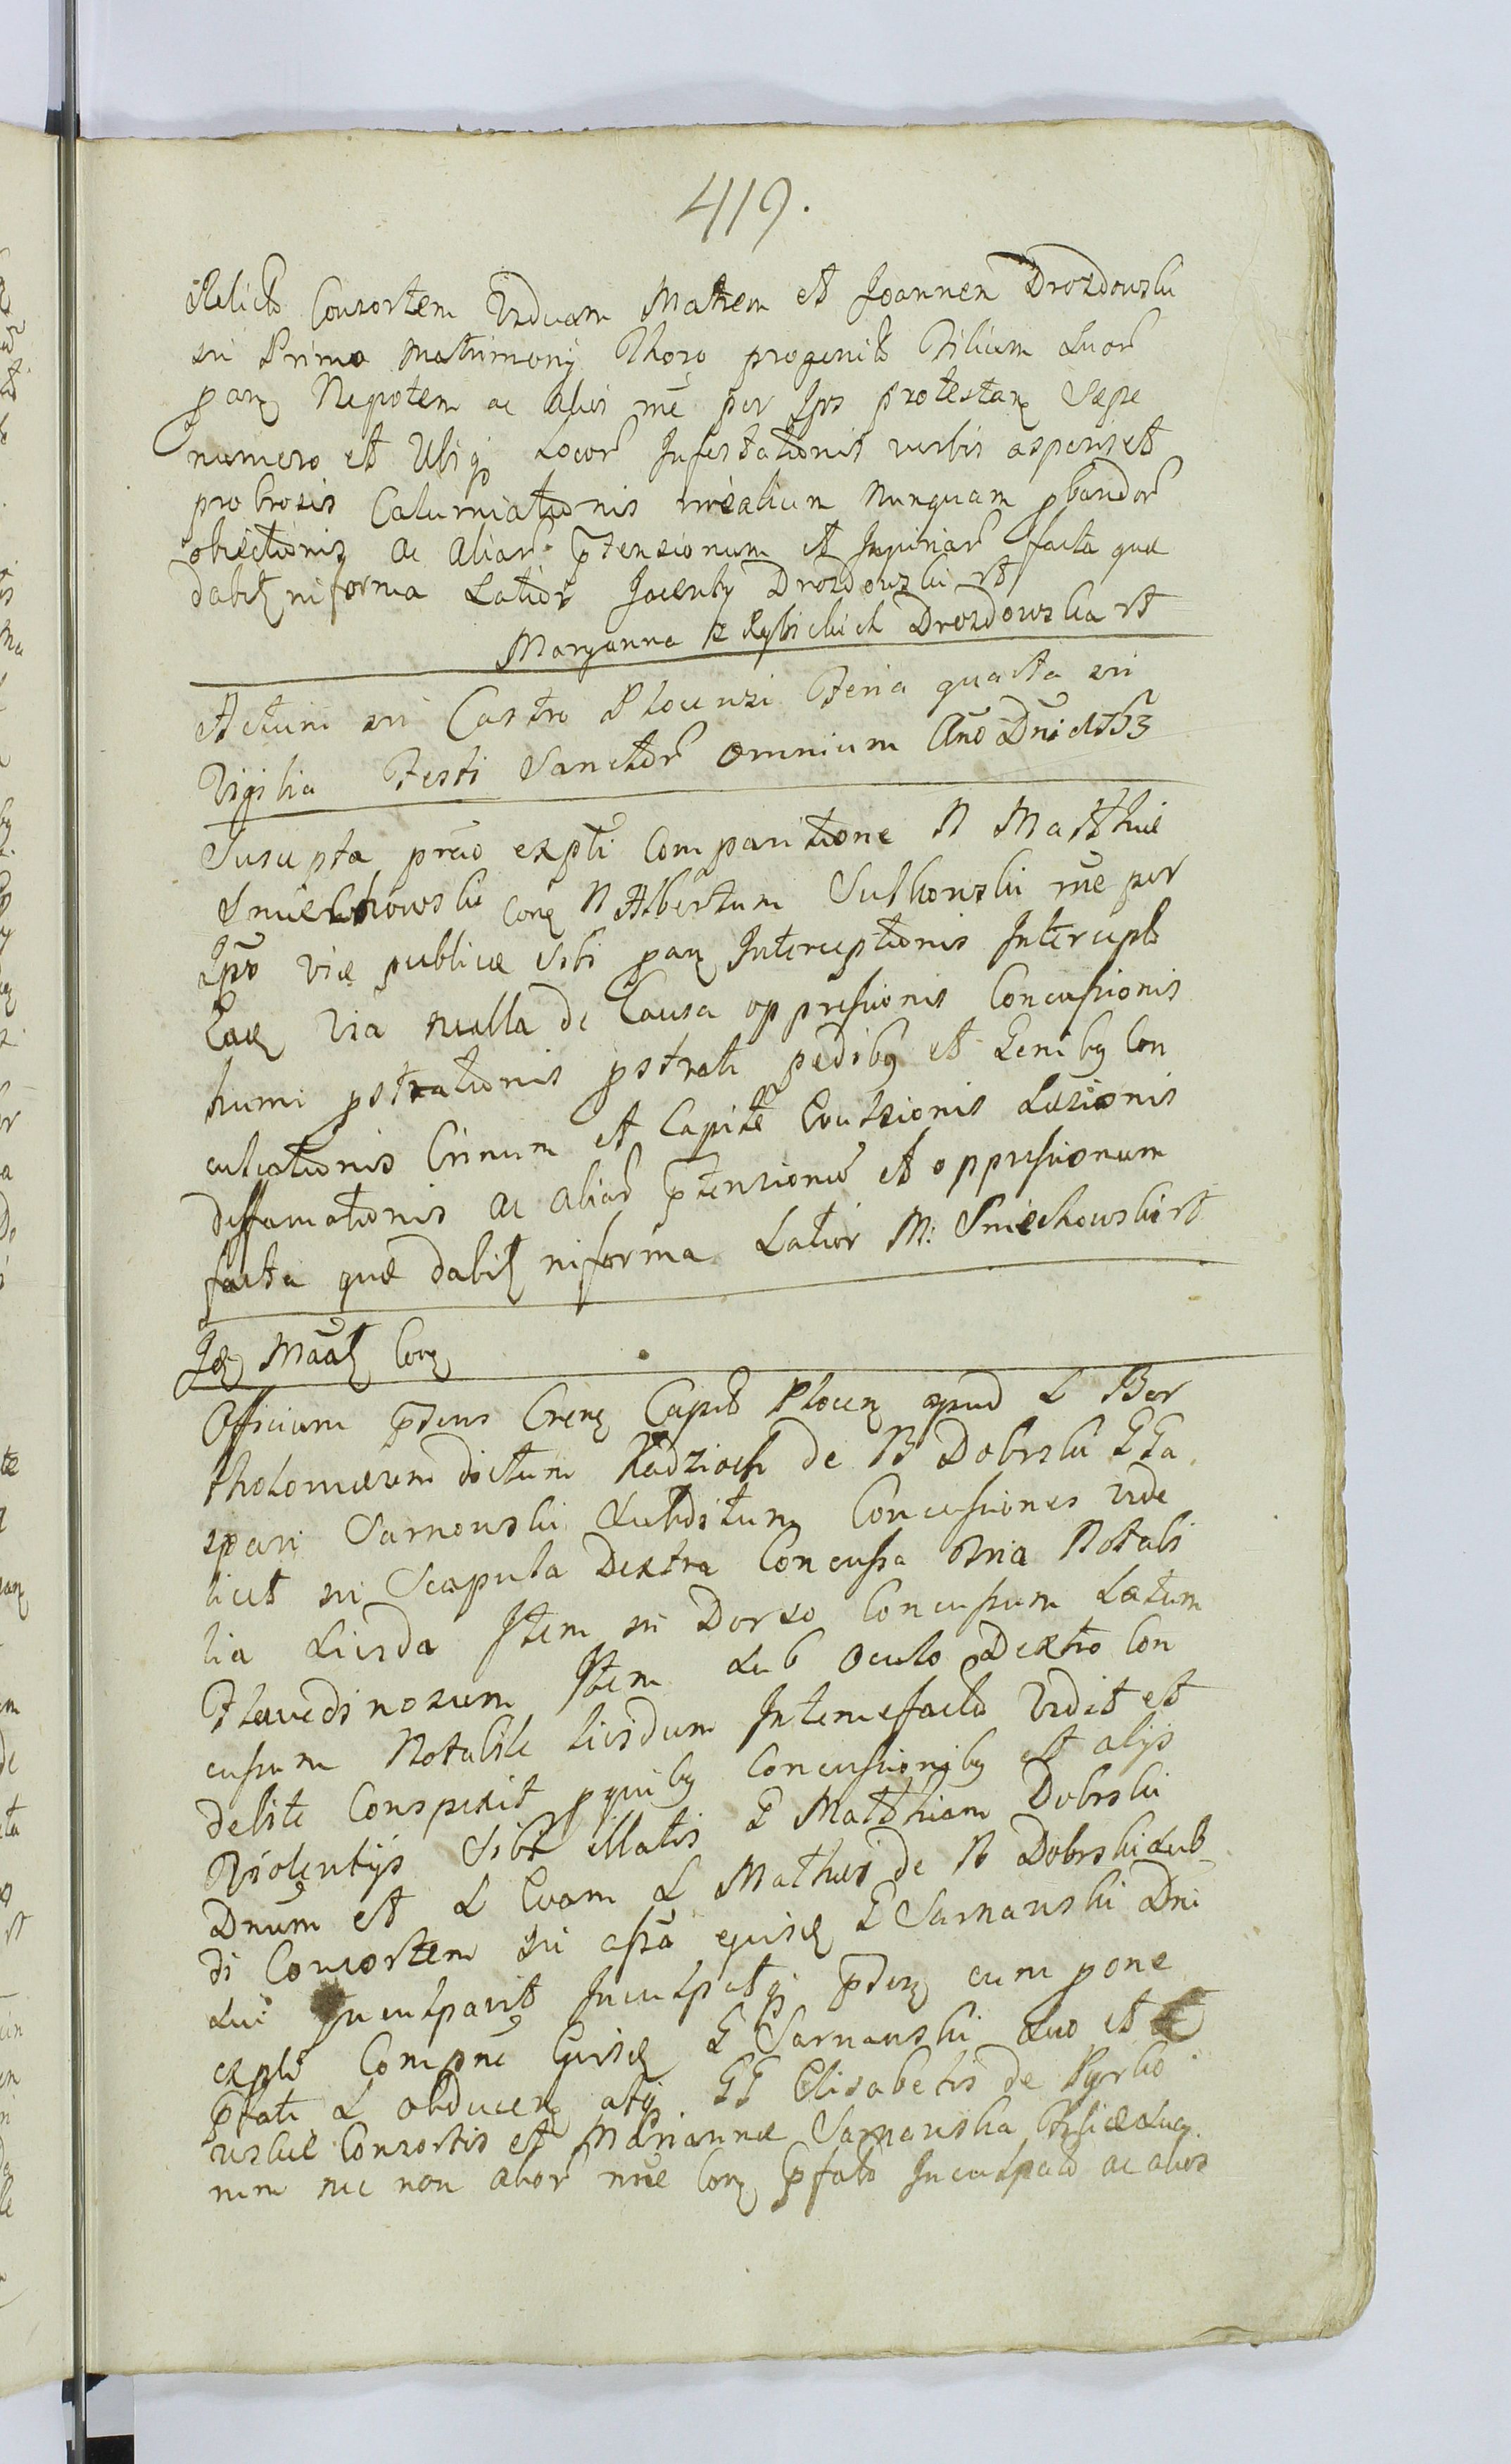 419.
Relicto Consortem Viduam Matrem et Joannem Drozdowski
in Primo Matrimonij Thoro progenito Filium Suor
par Nepotem ac alios rne per Ipos protestan Sæpe
numero et Ubiq Locor Infestationis verbis asperis et
probrosis Calumniationis irrealium Nunquam pbandor
obiectionis ac aliar ptensionum et Injuriar facta quæ
dabit in forma Latior Jacenty Drozdowski rt
Maryanna z Rybickich Drozdowska rt
Actum in Castro Plocensi Feria quarta in
Vigilia Festi Sanctor Omnium Año Dni
Suscepta pmo expti Comparitione N Matthiæ
Smiechowski Con N Albertum Sulkowski rne per
Ipsū viæ publicæ sibi par Interceptionis Intercepto
Eade via nulla de Causa oppressionis Concussionis
humi pstrationis pstrati pedibq et Genibq Con
culcationis Crinum et Capite Evulsionis Læsionis
deffamationis ac aliar ptensionū et oppressionum
facta quæ dabit in forma Latior M: Smiechowski rt
Officium pdens Crens Capit Plocen apud L Bar
tholomæum dictum Kadziach de B Dobrski G Ga
spari Sarnowski Subditum Concussiones vide
licet in Scapula Dextra Concussa oñia Notabi
lia Livida Item in Dorso Concussum Latum
Flavedinosum Item sub Oculo Dextro Con
cussum Notabile lividum Intumefacto vidit et
debite Conspexit pquibq Concussionibq et alijs
Violentijs sibi illatis G Matthiam Dobrski
Dnum et L Evam L Mathei de N Dobrski Sub
di Consortem in assa ejusd G Sarnawski Dni
Sui Inculpavit Inculpatq pden cum pone
expti Compne Ejusd G Sarnawski Suo et
pfati L obducen atq GG Elisabetis de Pyrko
wskie Consortis et Mariannæ Sarnawska Filiæ Suæ
nim nec non alior rne Con pfato Inculpato ac alios